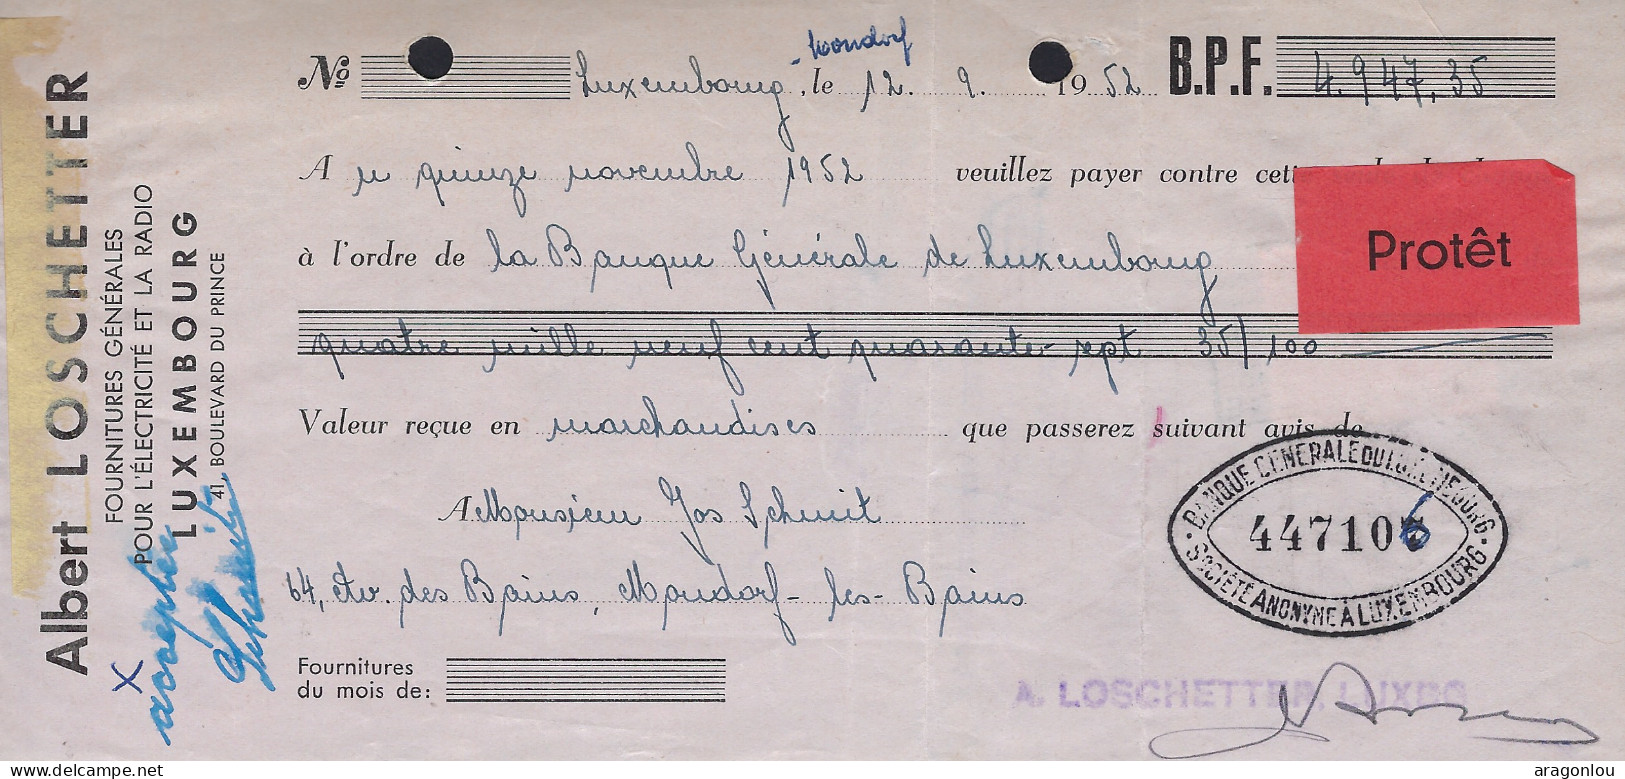 Albert LOSCHETTER
FOURNITURES GÉNÉRALES
POUR L'ÉLECTRICITÉ ET LA RADIO
LUXEMBOURG
41, BOULEVARD DU PRINCE
X
accepter
Schmit
Mondorf
No Luxembourg, le 12. 9. 1952 B.P.F. 4.947,35
A u quinze novembre 1952 veuillez payer contre cet
Protêt
à l'ordre de la Banque Générale de Luxembourg
quatre mille neuf cent quarante-sept 35/100
Valeur reçue en marchandises que passerez suivant avis de
A Monsieur Jos Schmit
64, Av. des Bains, Mondorf-les-Bains
BANQUE GENERALE DU LUXEMBOURG
447106
SOCIÉTÉ ANONYME A LUXEMBOURG
Fournitures
du mois de:
A. LOSCHETTER, LUXBG
aragonlou